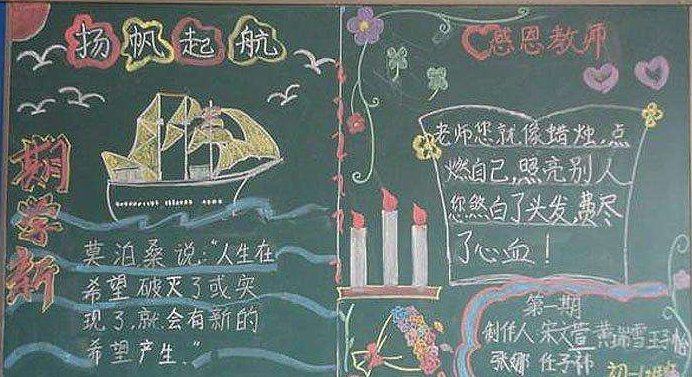 扬帆起航
期学新
莫泊桑说:“人生在
希望破灭了或实
现了,就会有新的
希望产生.”
感恩教师
老师您就像蜡烛,点
燃自己,照亮别人
您熬白了头发,费尽
了心血!
第一期
制作人 宋文萱 黄瑞雪 王子怡
张娜 任子祎
初一